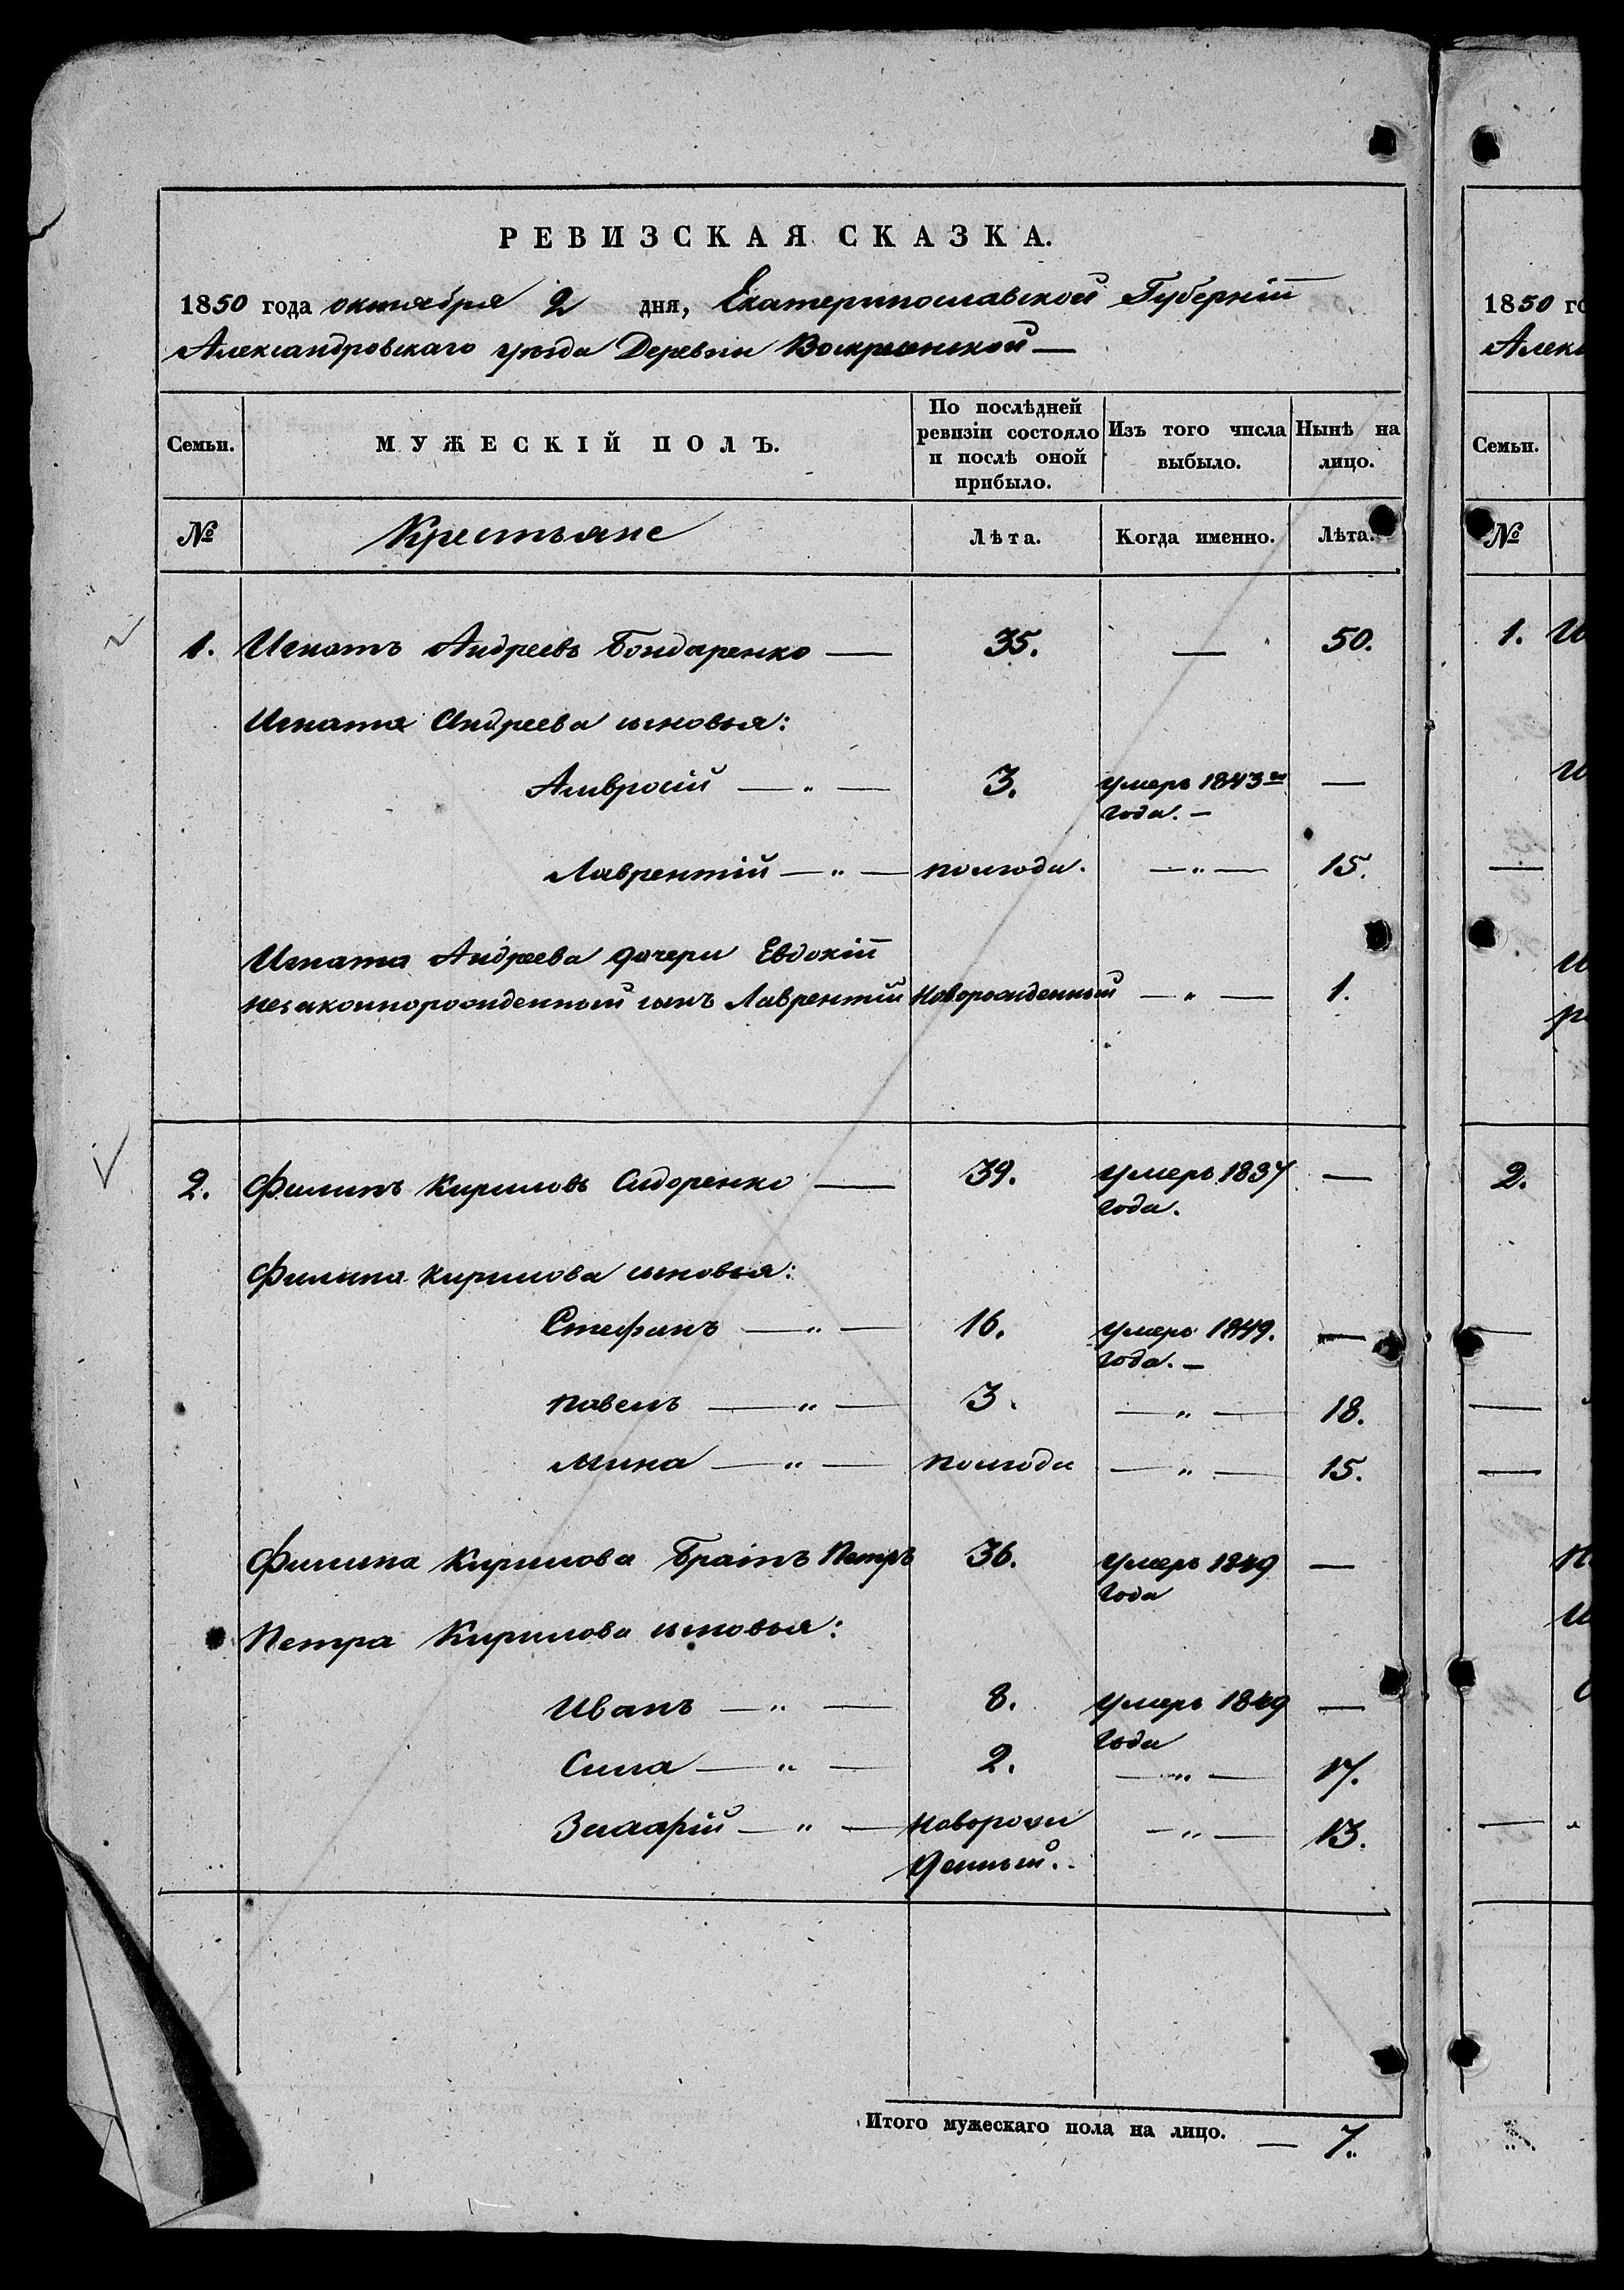 РЕВИЗСКАЯ СКАЗКА.
1850 года октября 2 дня, Екатеринославской Губерніи
Александровскаго уѣзда Деревни Воскресенской —
Семьи. МУЖЕСКІЙ ПОЛЪ. По послѣдней ревизіи состояло и послѣ оной прибыло. Изъ того числа выбыло. Нынѣ на лицо.
№ Крестьяне Лѣта. Когда именно. Лѣта.
1. Игнатъ Андреевъ Бондаренко — 35. — 50.
Игната Андреева сыновья:
Амвросій — " — 3. умеръ 1843го —
года. —
Лаврентій — " — полгода. — " — 15.
Игната Андреева дочери Евдокіи
незаконнорожденный сынъ Лаврентій Новорожденный — " — 1.
2. Филипъ Кириловъ Сидоренко — 39. умеръ 1837 —
года.
Филипа Кирилова сыновья:
Стефанъ — " — 16. умеръ 1849. —
года. —
Павелъ — " — 3. — " — 18.
Мина — " — полгода — " — 15.
Филипа Кирилова братъ Петръ 36. умеръ 1849 —
года
Петра Кирилова сыновья:
Иванъ — " — 8. умеръ 1849 —
года
Сила — " — 2. — " — 17.
— " — Новорож — " — 13.
денный.
Итого мужескаго пола на лицо. — 7.
1850 го
Алекс
Семьи.
№
1. И
И
И
2.